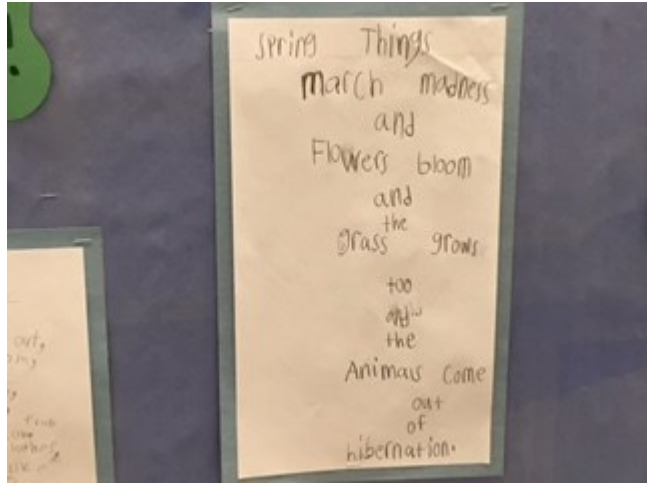 Spring Things
March madness
and
Flowers bloom
and
the
grass grows
too
and
the
Animals Come
out
of
hibernation.
out,